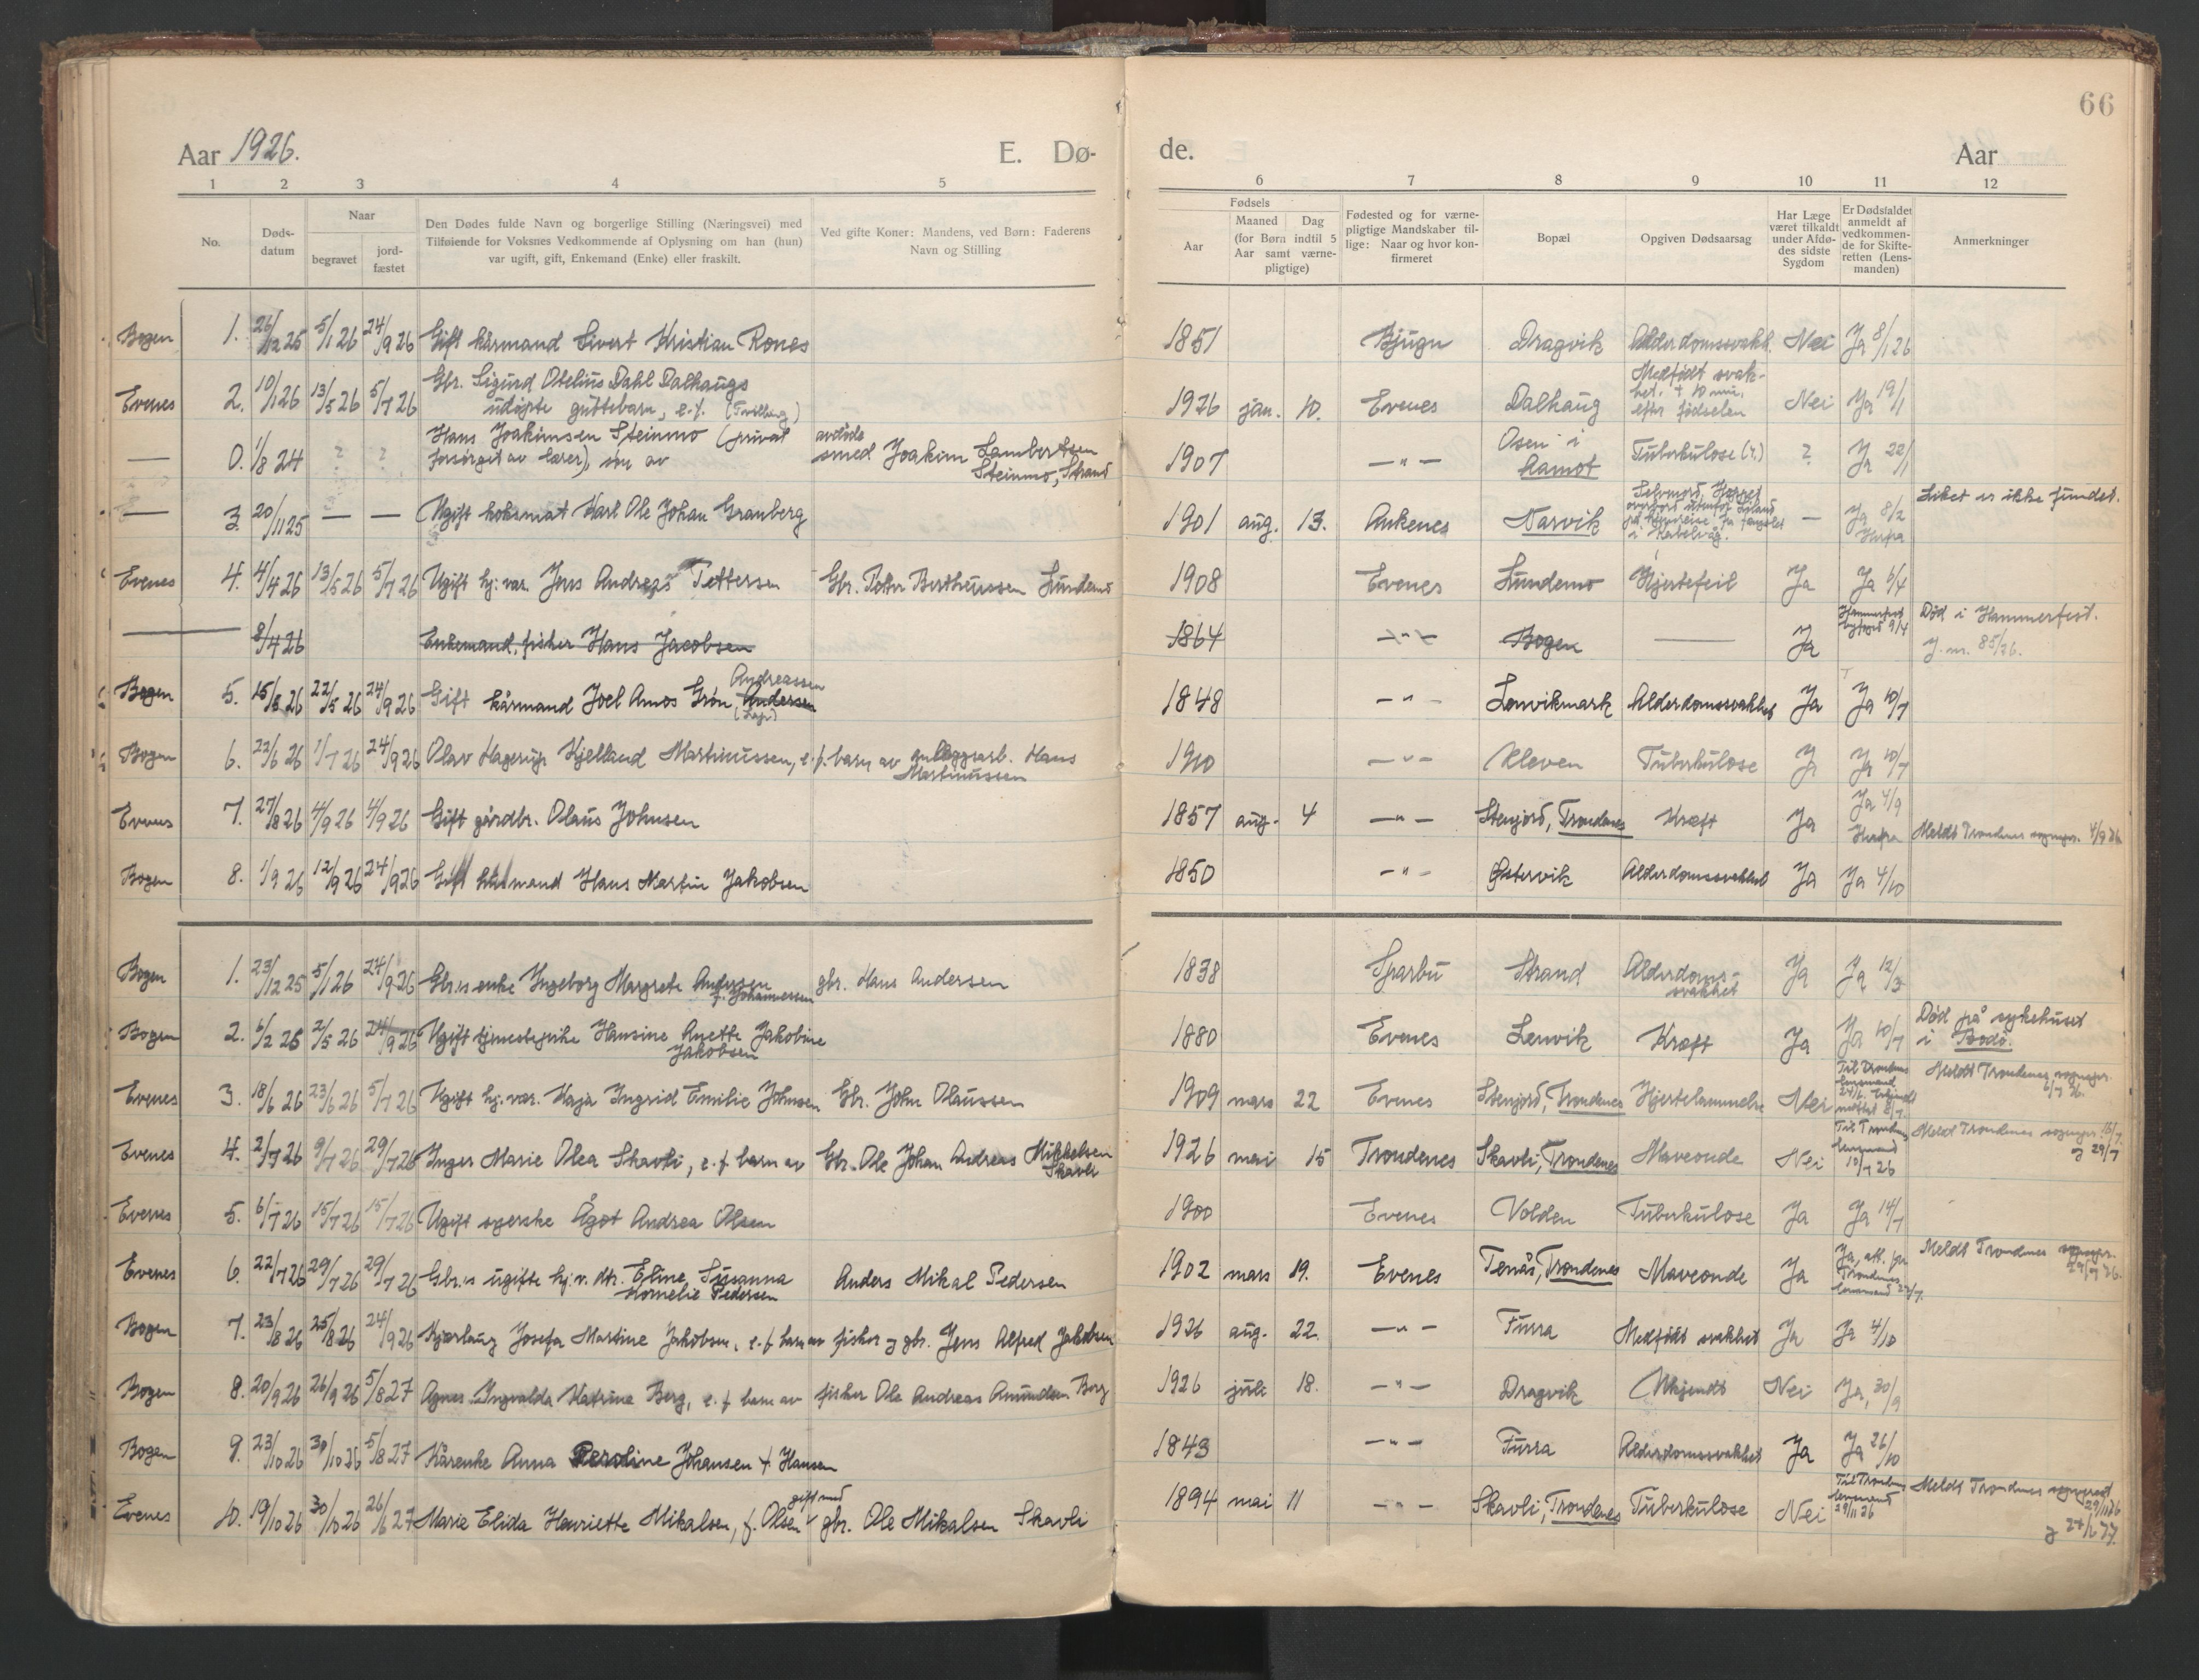 66
Aar 1926. E. Dø- de. Aar
1 2 3 4 5 6 7 8 9 10 11 12
No.
Døds-
datum
Naar
begravet
jord-
fæstet
Den Dødes fulde Navn og borgerlige Stilling (Næringsvei) med
Tilføiende for Voksnes Vedkommende af Oplysning om han (hun)
var ugift, gift, Enkemand (Enke) eller fraskilt.
Ved gifte Koner: Mandens, ved Børn: Faderens
Navn og Stilling
Fødsels
Aar
Maaned Dag
(for Børn indtil 5
Aar samt værne-
pligtige)
Fødested og for værne-
pligtige Mandskaber til-
lige: Naar og hvor kon-
firmeret
Bopæl
Opgiven Dødsaarsag
Har Læge
været tilkaldt
under Afdø-
des sidste
Sygdom
Er Dødsfaldet
anmeldt af
vedkommen-
de for Skifte-
retten (Lens-
manden)
Anmerkninger
Bogen 1. 26/12 25 5/1 26 24/9 26 Gift kårmand Sivert Kristian Rones 1851 Bjugn Dragvik Alderdomssvakh. Nei Ja 8/1 26
Evenes 2. 10/1 26 13/5 26 5/7 26 Gbr. Sigurd Otelius Dahl Dalhaugs
udøpte guttebarn, e.f. (Tvilling) 1926 jan. 10. Evenes Dalhaug Medfødt svak-
het. + 10 min.
efter fødselen Nei Ja 19/1
— 0. 1/8 24 ? ? Hans Joakimsen Steinmo (privat
forsørget av lærer), søn av avdøde
smed Joakim Lambertsen
Steinmo, Strand 1907 —"— Osen i
Aamot Tuberkulose ? Ja 22/1
— 3. 20/11 25 — — Ugift koksmat Karl Ole Johan Granberg 1901 aug. 13. Ankenes Narvik Selvmord, Hoppet
overbord utenfor
i Kabelvåg. — Ja 8/2
Herfra Liket er ikke fundet.
Evenes 4. 4/4 26 13/5 26 5/7 26 Ugift hj. var. Jens Andreas Pettersen Gbr. Petter Bertheussen Lundemo 1908 Evenes Lundemo Hjertefeil Ja Ja 6/4
— 8/4 26 Enkemand, fisker Hans Jacobsen 1864 —"— Bogen — Ja Hammerfest
byfoged 9/4 Død i Hammerfest.
J. nr. 85/26.
Bogen 5. 15/5 26 22/5 26 24/9 26 Gift kårmand Joel Amos Grøn, Andersen
Andreassen
(Lap) 1848 —"— Lenvikmark Alderdomssvakhet Ja Ja 10/7
Bogen 6. 22/6 26 1/7 26 24/9 26 Olav Hagerup Kjelland Martinussen, e.f. barn av anleggsarb. Hans
Martinussen 1910 —"— Kleven Tuberkulose Ja Ja 10/7
Evenes 7. 27/8 26 4/9 26 4/9 26 Gift gårdbr. Olaus Johnsen 1857 aug. 4 —"— Stenjord, Trondenes Kræft Ja Ja 4/9
Herfra Meldt Trondenes sognepr. 4/9 26
Bogen 8. 1/9 26 12/9 26 24/9 26 Gift husmand Hans Martin Jakobsen 1850 —"— Østervik Alderdomssvakhet Ja Ja 4/10
Bogen 1. 23/12 25 5/1 26 24/9 26 Gbr.s enke Ingeborg Margrete Andersen
f. Johannessen gbr. Hans Andersen 1838 Sparbu Strand Alderdoms-
svakhet Ja Ja 12/3
Bogen 2. 6/2 26 2/5 26 24/9 26 Ugift tjenestepike Hansine Anette Jakobine
Jakobsen 1880 Evenes Lenvik Kræft Ja Ja 10/7 Død på sykehuset
i Bodø.
Evenes 3. 18/6 26 23/6 26 5/7 26 Ugift hj. var. Kaja Ingrid Emilie Johnsen Gbr. John Olaussen 1909 mars 22 Evenes Stenjord, Trondenes Hjertelammelse Nei Til Trondenes
lensmand Meldt Trondenes sognepr.
Evenes 4. 2/7 26 9/7 26 29/7 26 Inger Marie Olea Skavli, e.f. barn av Gbr. Ole Johan Andreas Mikkelsen
Skavli 1926 mai 15 Trondenes Skavli, Trondenes Maveonde Nei Til Trondenes
lensmand
10/7 26 Meld Trondenes sognepr. 16/7
og 29/7
Evenes 5. 6/7 26 15/7 26 15/7 26 Ugift syerske Ågot Andrea Olsen 1900 Evenes Volden Tuberkulose Ja Ja 14/7
Evenes 6. 22/7 26 29/7 26 29/7 26 Gbr.s ugifte hj.v. dtr. Eline Susanna
Kornelie Pedersen Anders Mikal Pedersen 1902 mars 19. Evenes Tenås, Trondenes Maveonde Ja Ja, att. fra
Trondenes
lensmand 27/7. Meldt Trondenes sognepr.
29/7 26.
Bogen 7. 23/8 26 25/8 26 24/9 26 Hjørlaug Josefa Martine Jakobsen, e.f. barn av fisker og gbr. Jens Alfred Jakobsen 1926 aug. 22. —"— Furra Medfødt svakhet Ja Ja 4/10
Bogen 8. 20/9 26 26/9 26 5/8 27 Agnes Ingvalda Katrine Berg, e.f. barn av fisker Ole Andreas Amundsen Berg 1926 juli 18. —"— Dragvik Ukjendt Nei Ja, 30/9
Bogen 9. 23/10 26 30/10 26 5/8 27 Kårenke Anna Peroline Johansen f. Hansen 1843 —"— Furra Alderdomssvakhet Ja Ja 26/10
Evenes 10. 19/10 26 30/10 26 26/6 27 Marie Elida Henriette Mikalsen, f. Olsen gift med gbr. Ole Mikalsen Skavli 1894 mai 11 —"— Skavli, Trondenes Tuberkulose Nei Til Trondenes
lensmand
29/11 26 Meldt Trondenes sogneprest
29/11 26